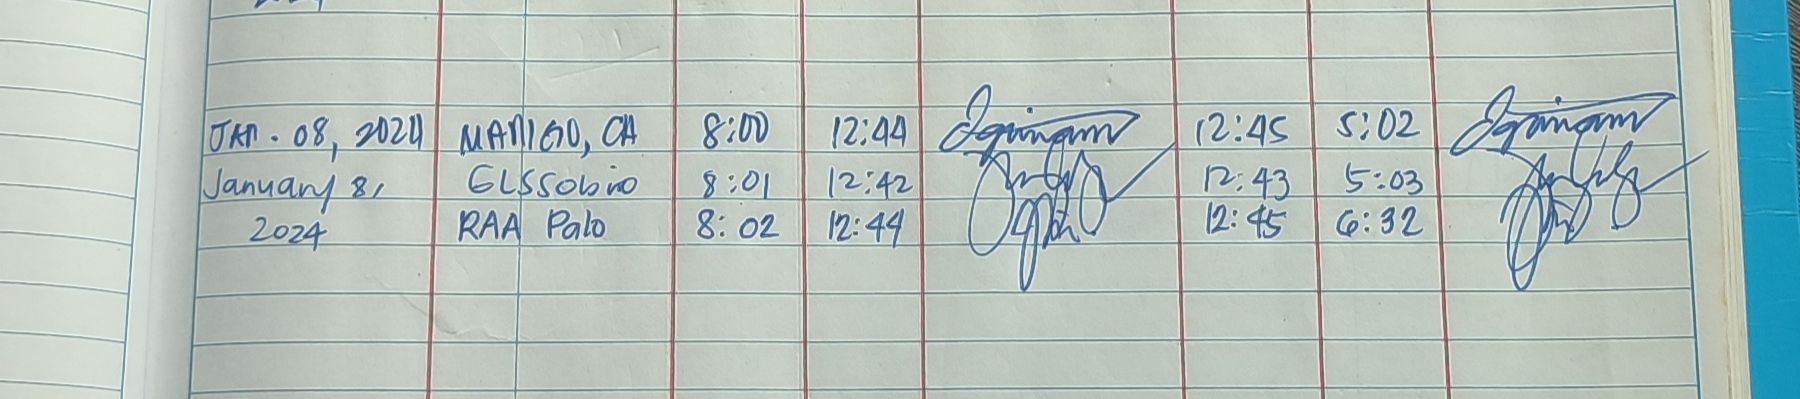 JAN. 08, 2024 MANIGO, CA 8:00 12:44 12:45 5:02
January 8, GLSSobrio 8:01 12:42 12:43 5:03
2024 RAA Palo 8:02 12:44 12:45 6:32